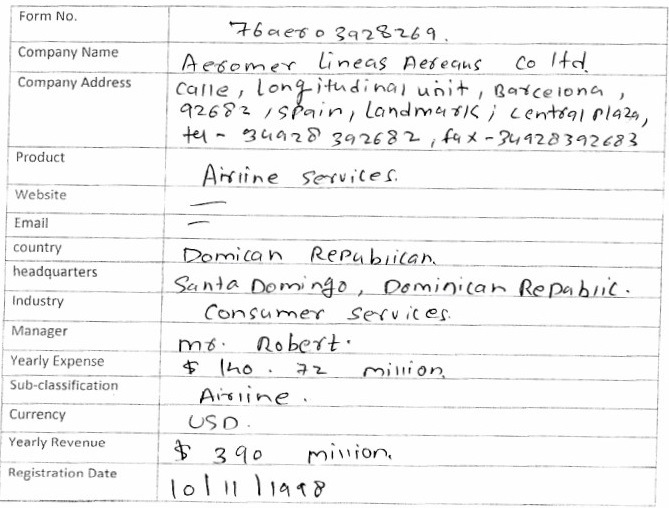 Form No. 76aero3928269.
Company Name Aeromer Lineas Aereans Co ltd.
Company Address Calle, Longitudinal unit, Barcelona,
92682, Spain, Landmark; central plaza,
tel - 34928392682, fax - 34928392683
Product Airline services.
Website —
Email —
country Domican Republican.
headquarters Santa Domingo, Dominican Repablic.
Industry Consumer services.
Manager mr. Robert.
Yearly Expense $ 140.72 million.
Sub-classification Airline.
Currency USD.
Yearly Revenue $ 390 million.
Registration Date 10/11/1998